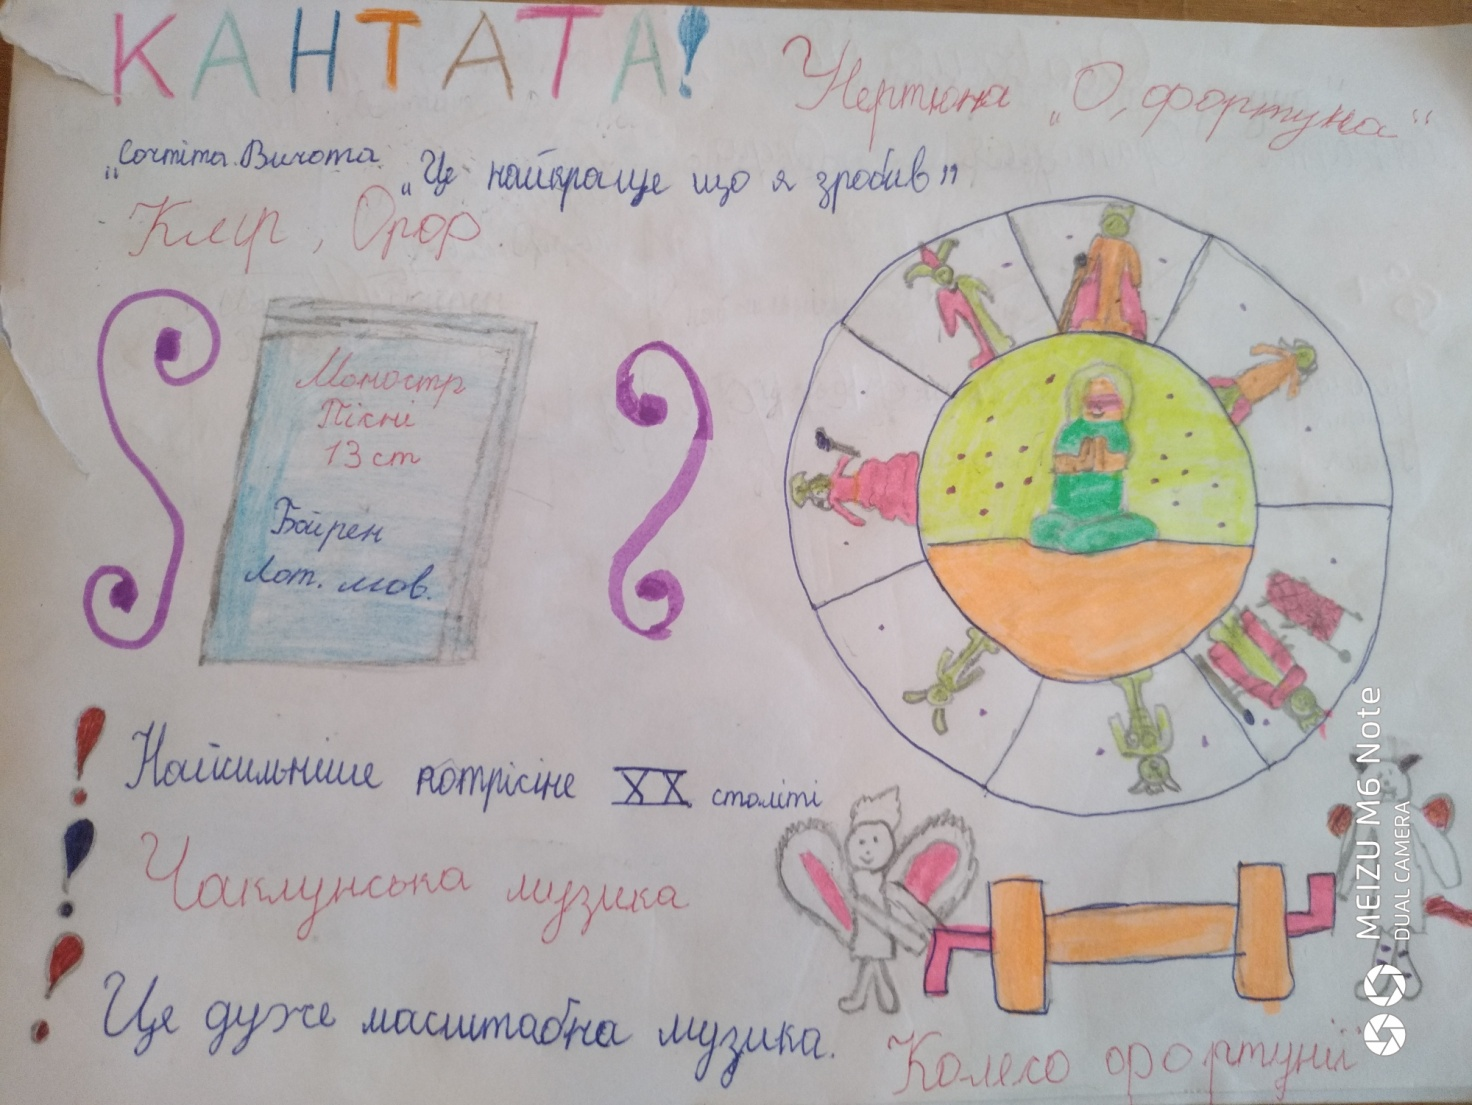 КАНТАТА!
Нертюна „О, фортуна“
„Сочтіта. Вичота
„Це найкраще що я зробив”
Клір, Орф
Моностр
Пісні
13 ст
Байрен
Лот. мов.
Найсильніше потрісіне XX століті
Чаклунська музика
Це дуже масштабна музика.
Колесо фортуни
MEIZU M6 Note
DUAL CAMERA